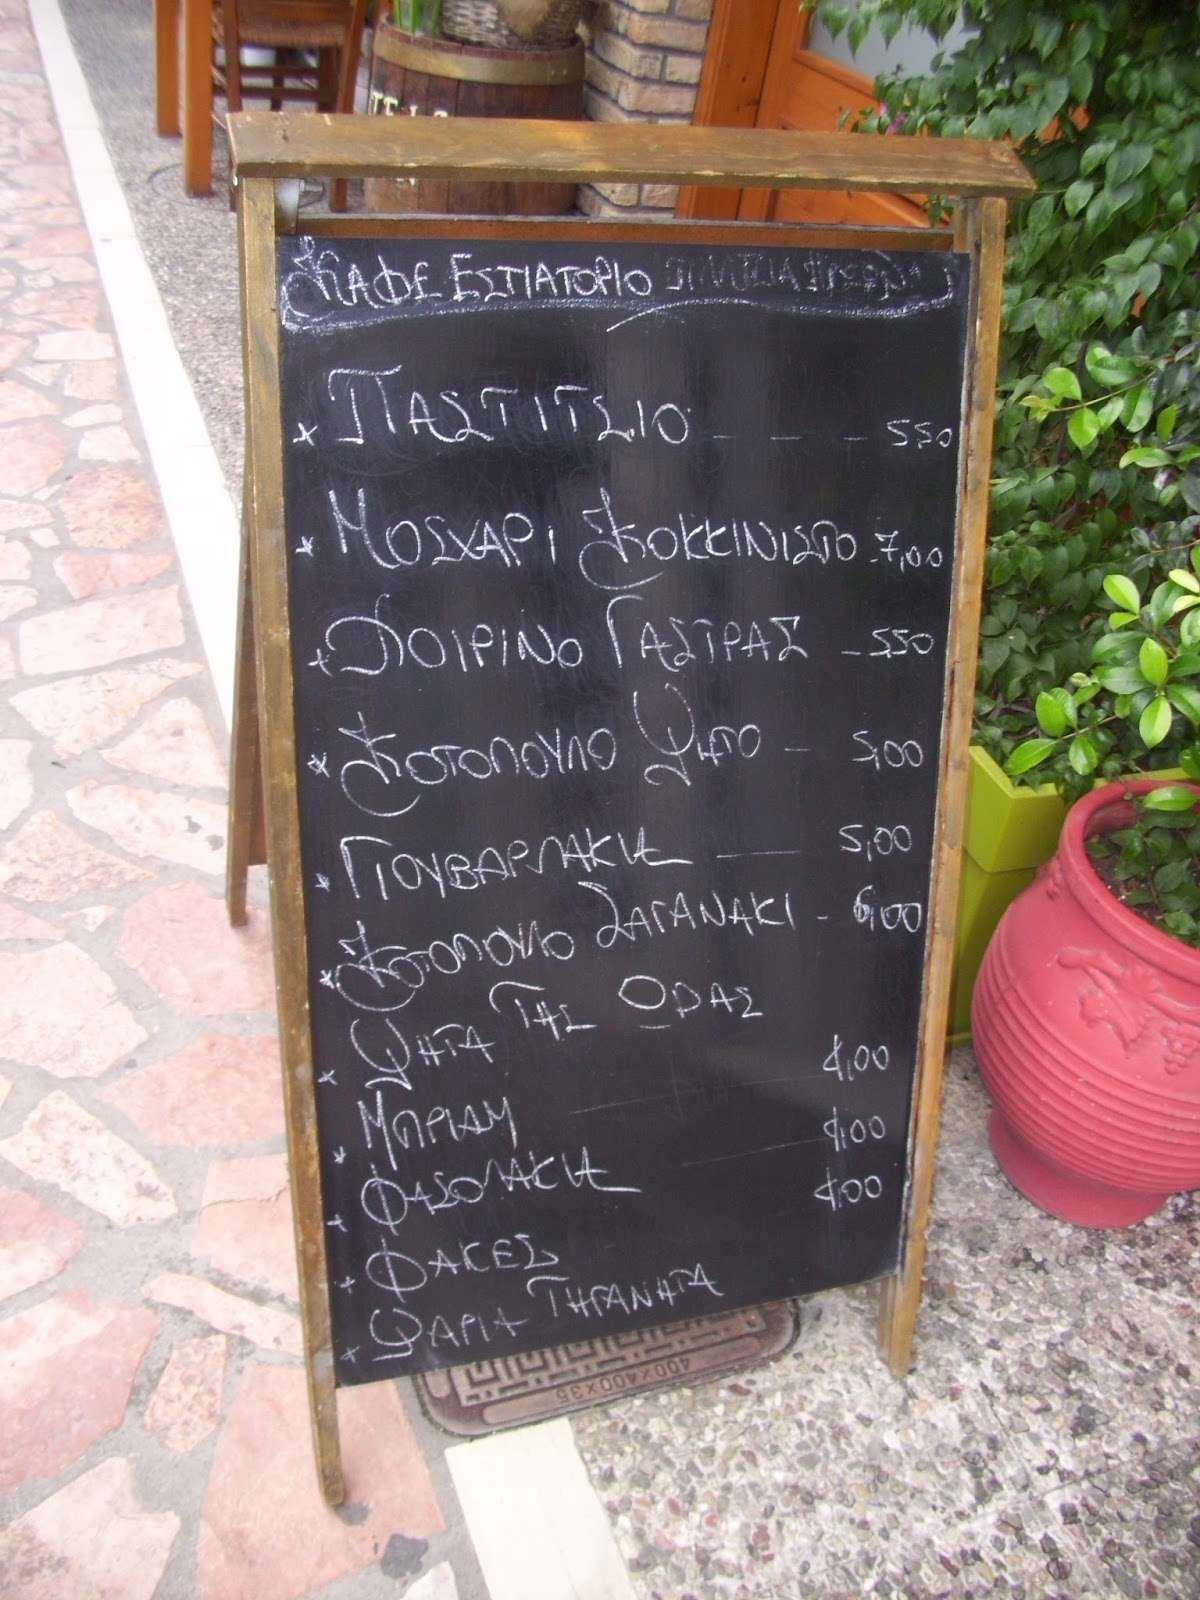 ΚΑΦΕ ΕΣΤΙΑΤΟΡΙΟ
x ΠΑΣΤΙΤΣΙΟ - - - 550
x ΜΟΣΧΑΡΙ ΚΟΚΚΙΝΙΣΤΟ - 7,00
x ΧΟΙΡΙΝΟ ΓΑΣΤΡΑΣ - 550
x ΚΟΤΟΠΟΥΛΟ ΨΗΤΟ - 5,00
x ΓΙΟΥΒΑΡΛΑΚΙΑ - 5,00
x ΚΟΤΟΠΟΥΛΟ ΣΑΓΑΝΑΚΙ - 6,00
x ΨΗΤΑ ΤΗΣ ΩΡΑΣ
x ΜΠΡΙΑΜ - 4,00
x ΦΑΣΟΛΑΚΙΑ - 4,00
x ΦΑΚΕΣ 4,00
x ΨΑΡΙΑ ΤΗΓΑΝΗΤΑ
400x400x35